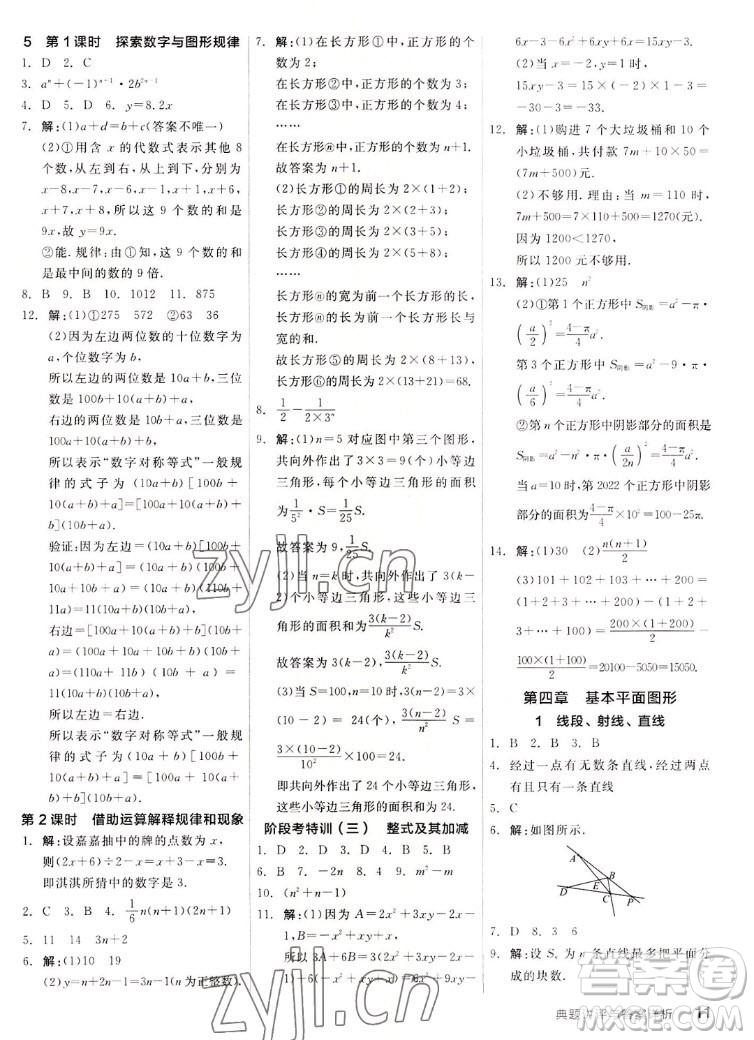 5 第1课时 探索数字与图形规律
1. D 2. C
3. aⁿ+(-1)ⁿ⁻¹·2b²ⁿ⁻¹
4. D 5. D 6. y=8.2x
7. 解:(1)a+d=b+c(答案不唯一)
(2)①用含 x 的代数式表示其他 8
个数,从左到右,从上到下,分别为
x-8,x-7,x-6,x-1,x+1,x+6,
x+7,x+8,
所以这 9 个数的和是
9x.故 y=9x.
②能.规律:这 9 个数的和总是
最中间的数的 9 倍.
8. B 9. B 10. 1012 11. 875
12. 解:(1)①275 572 ②63 36
(2)因为左边两位数的十位数字为
a,个位数字为 b,
所以左边的两位数是 10a+b,三位
数是 100b+10(a+b)+a,
右边的两位数是 10b+a,三位数是
100a+10(a+b)+b,
所以表示“数字对称等式”一般规
律的式子为 (10a+b)[100b+
10(a+b)+a]=[100a+10(a+
b)+b](10b+a).
验证:因为左边=(10a+b)[100b+
10(a+b)+a]=(10a+b)(110b+
11a)=11(10a+b)(10b+a),
右边=[100a+10(a+b)+b]·
(10b+a)=(110a+11b)(10b+
a)=11(10a+b)(10b+a),
所以左边=右边.
所以“数字对称等式”一般规律
的式子为(10a+b)[100b+10(a+
b)+a]=[100a+10(a+b)+
b](10b+a).
第2课时 借助运算解释规律和现象
1. 解:设嘉嘉抽中的牌的点数为 x,
则(2x+6)÷2-x=x+3-x=3,
即淇淇所猜中的数字是 3.
2. C 3. B 4. 1/6 n(n+1)(2n+1)
5. 11 14 2
6. 解:(1)
(2)y=n+2n-1=3n-1(n 为正整数).
7. 解:(1)在长方形①中,正方形的
个数为 2;
在长方形②中,正方形的个数为 3;
在长方形③中,正方形的个数为 4;
……
在长方形ⓝ中,正方形的个数为 n+1.
故答案为 n+1.
(2)长方形①的周长为 2×(1+2);
长方形②的周长为 2×(2+3);
长方形③的周长为 2×(3+5);
长方形④的周长为 2×(5+8);
……
长方形ⓝ的宽为前一个长方形的长,
长方形ⓝ的长为前一个长方形长与
宽的和.
故长方形⑤的周长为 2×(8+13);
长方形⑥的周长为 2×(13+21)=68.
8. 1/2-1/(2×3ⁿ)
9. 解:(1)n=5 对应图中第三个图形,
共向外作出了 3×3=9(个)小等边
三角形,每个小等边三角形的面积
为 1/5²·S=1/25 S.
故答案为 9,1/25 S.
(2)当 n=k 时,共向外作出了 3(k-
2)个小等边三角形,这些小等边三
角形的面积和为 3(k-2)/k² S.
故答案为 3(k-2),3(k-2)/k² S.
(3)当 S=100,n=10 时,3(n-2)=
3×(10-2)=24(个),3(n-2)/n² S=
3×(10-2)/10²×100=24,
即共向外作出了 24 个小等边三角形,
这些小等边三角形的面积和为 24.
阶段考特训(三) 整式及其加减
1. D 2. D 3. C 4. B 5. C
6. B 7. -2n 8. 4 9. m²-m
10. (n²+n-1)
11. 解:(1)因为 A=2x²+3xy-2x-
1,B=-x²+xy-1,
所以 3A+6B=3(2x²+3xy-2x-
1)+6(-x²+xy-1)=6x²+9xy-
6x-3-6x²+6xy-6=15xy-
6x-9.
(2)当
15xy-6x-9=15×
-30-33.
12. 解:(1)购进 7 个大垃圾桶和 10
个小垃圾桶,共付款 7m+10×50=
(7m+500)元.
(2)不够用.理由:当 m=110 时,
7m+500=7×110+500=1270(元).
因为 1200<1270,
所以 1200 元不够用.
13. 解:(1)25 n²
(2)①第 2 个正方形中 S阴影=a²-4π
·(a/4)²=(4-π)/4 a²,
第 3 个正方形中 S阴影=a²-9·π·
(a/6)²=(4-π)/4 a².
②第 n 个正方形中阴影部分的面积是
S阴影=a²-n²·π·(a/2n)²=(4-π)/4 a².
当 a=10 时,第 2022 个正方形中阴影
部分的面积为 (4-π)/4×10²=100-25π.
14. 解:(1)30 (2)n(n+1)/2
(3)101+102+103+…+200=
(1+2+3+…+200)-(1+2+
3+…+100)=200×(1+200)/2-
100×(1+100)/2=20100-5050=15050.
第四章 基本平面图形
1 线段、射线、直线
1. B 2. B 3. D
4. 经过一点有无数条直线,经过两点
有且只有一条直线
5. C
6. 解:如图所示.
A
B
D E
C P
7. D 8. 3 6
9. 解:设 Sₙ 为 n 条直线最多把平面分
成的块数.
zyjl.cn
zyjl.cn
11